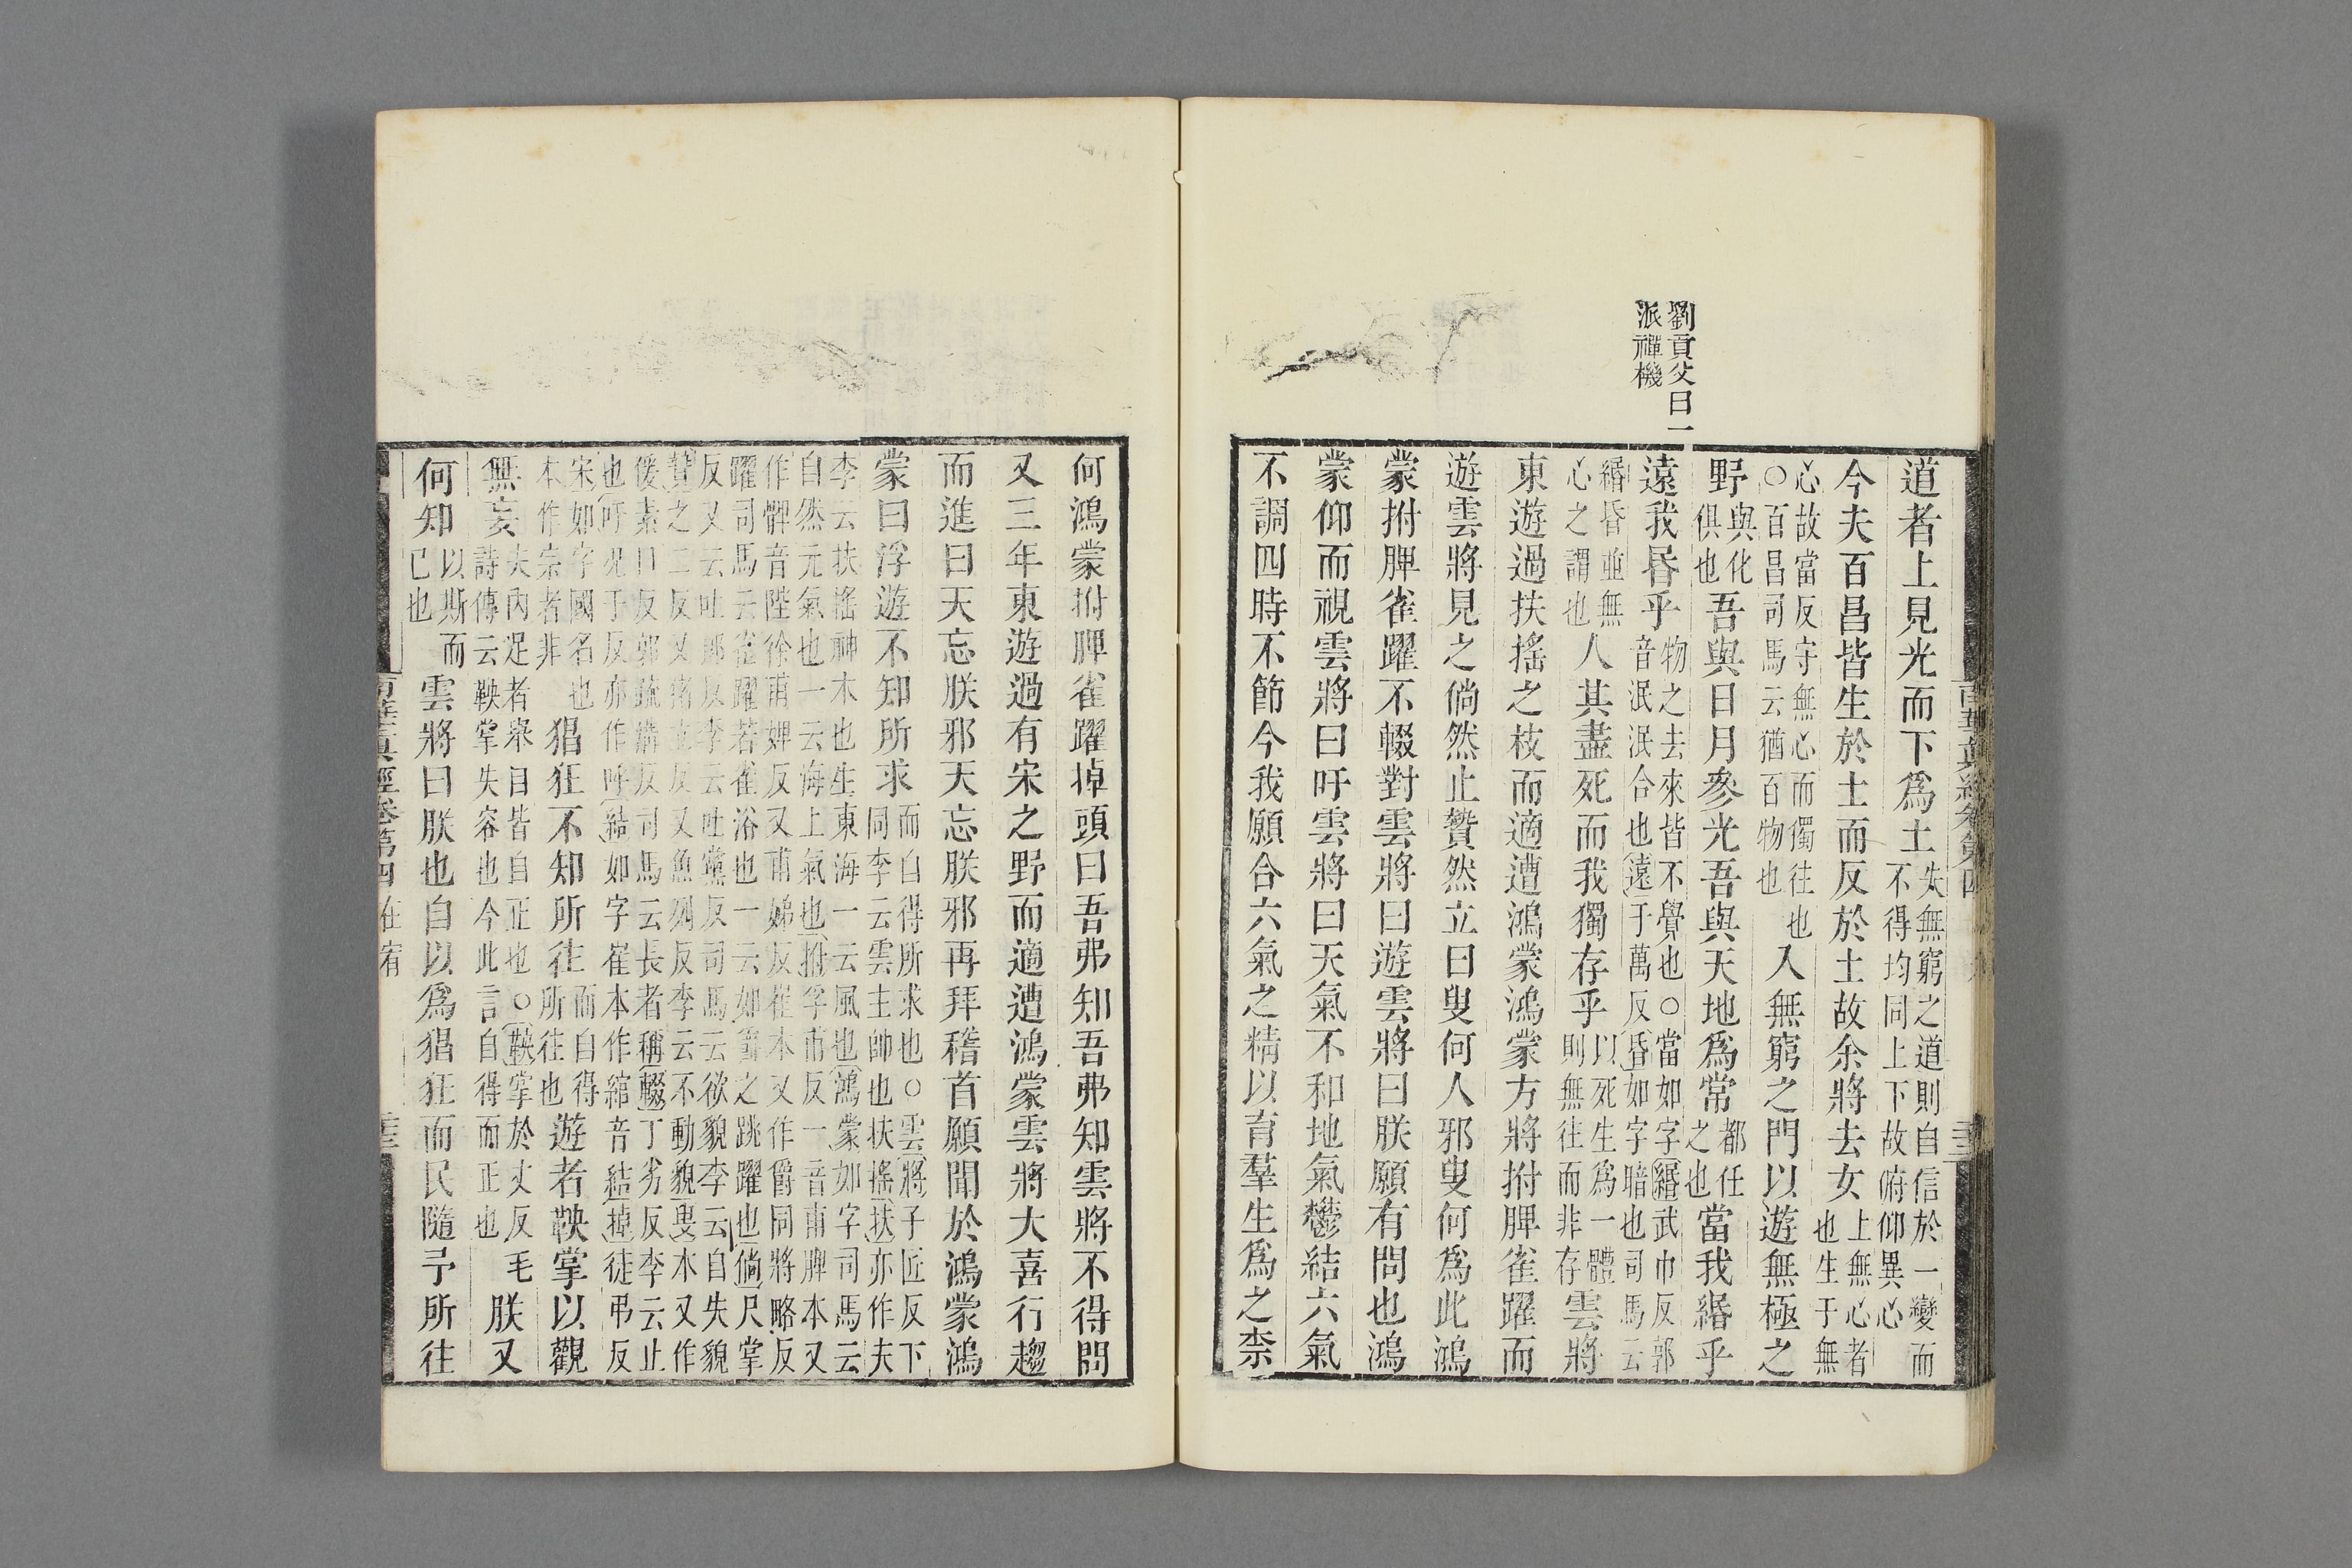 劉貢父曰一
派禪機
道者上見光而下爲土失無窮之道則自信於一變而不得均同上下故俯仰異心
今夫百昌皆生於土而反於土故余將去女上無心者也生于無
心故當反守無心而獨往也○百昌司馬云猶百物也入無窮之門以遊無極之
野與化俱也吾與日月參光吾與天地爲常都任之也當我緡乎
遠我昏乎物之去來皆不覺也○當如字緡武巾反郭音泯泯合也遠于萬反昏如字暗也司馬云
緡昏並無心之謂也人其盡死而我獨存乎以死生爲一體則無往而非存雲將
東遊過扶搖之枝而適遭鴻蒙鴻蒙方將拊脾雀躍而
遊雲將見之倘然止贄然立曰叟何人邪叟何爲此鴻
蒙拊脾雀躍不輟對雲將曰遊雲將曰朕願有問也鴻
蒙仰而視雲將曰吁雲將曰天氣不和地氣鬱結六氣
不調四時不節今我願合六氣之精以育羣生爲之柰
何鴻蒙拊脾雀躍掉頭曰吾弗知吾弗知雲將不得問
又三年東遊過有宋之野而適遭鴻蒙雲將大喜行趨
而進曰天忘朕邪天忘朕邪再拜稽首願聞於鴻蒙鴻
蒙曰浮遊不知所求而自得所求也○雲將子匠反下同李云雲主帥也扶搖扶亦作夫
李云扶搖神木也生東海一云風也鴻蒙如字司馬云自然元氣也一云海上氣也拊孚甫反一音甫脾本又
作髀音陛徐甫婢反又甫娣反雀本又作爵同將略反躍司馬云雀躍若雀浴也一云如雀之跳躍也倘尺掌
反又云吐郎反李云吐黨反司馬云欲貌李云自失貌贄之二反又豬立反又魚列反李云不動貌叟本又作
傁素口反郭疏搆反司馬云長者稱輟丁劣反李云止也吁況于反亦作呼結如字崔本作綰音結掉徒弔反
宋如字國名也本作宗者非猖狂不知所往而自得所往也遊者鞅掌以觀
無妄夫內足者舉目皆自正也○鞅掌於丈反毛詩傳云鞅掌失容也今此言自得而正也朕又
何知以斯而已也雲將曰朕也自以爲猖狂而民隨予所往
南華眞經卷第四 在宥